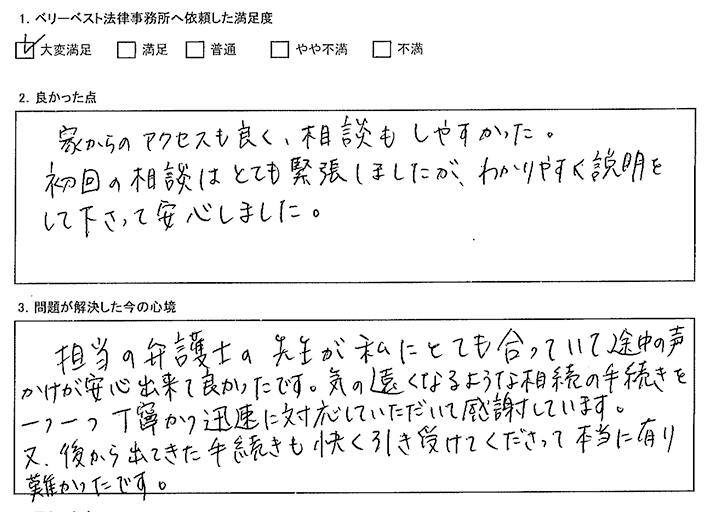 1. ベリーベスト法律事務所へ依頼した満足度
大変満足 満足 普通 やや不満 不満
2. 良かった点
家からのアクセスも良く、相談もしやすかった。
初回の相談はとても緊張しましたが、わかりやすく説明を
して下さって安心しました。
3. 問題が解決した今の心境
担当の弁護士の先生が私にとても合っていて途中の声
かけが安心出来て良かったです。気の遠くなるような相続の手続きを
一つ一つ丁寧かつ迅速に対応していただいて感謝しています。
又、後から出てきた手続きも快く引き受けてくださって本当に有り
難かったです。